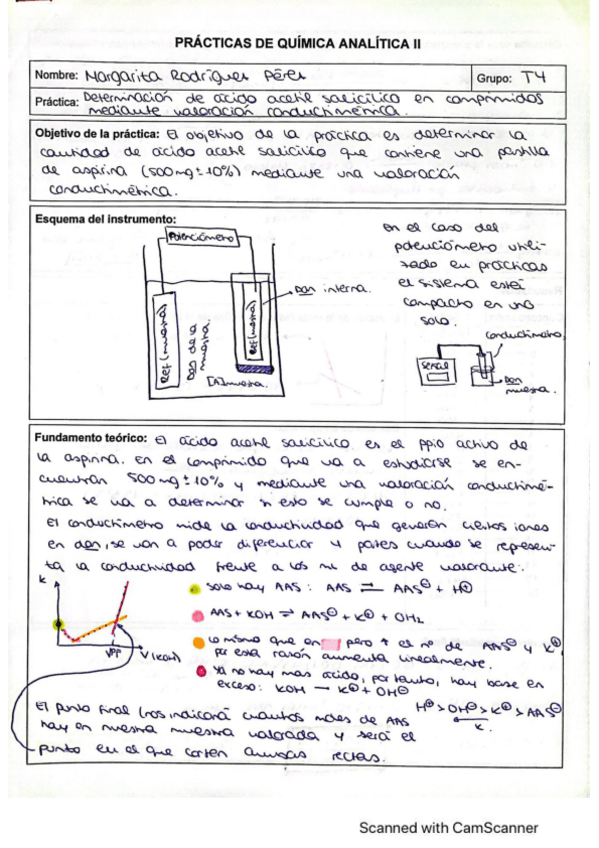 PRÁCTICAS DE QUÍMICA ANALÍTICA II
Nombre: Margarita Rodríguez Pérez
Grupo: T4
Práctica: Determinación de ácido acetil salicílico en comprimidos
mediante valoración conductimétrica.
Objetivo de la práctica: El objetivo de la práctica es determinar la
cantidad de ácido acetil salicílico que contiene una pastilla
de aspirina (500mg ± 10%) mediante una valoración
conductimétrica.
Esquema del instrumento:
Potenciómetro
Ref (muestra)
Don de la muestra
Ref (muestra)
Don interna.
[A]muestra.
en el caso del
potenciómetro utili-
zado en prácticas
el sistema está
compacto en uno
solo.
conductímetro
señal
Don
muestra.
Fundamento teórico: El ácido acetil salicílico es el ppio activo de
la aspirina. En el comprimido que va a estudiarse se en-
cuentran 500mg ± 10% y mediante una valoración conductimé-
trica se va a determinar si esto se cumple o no.
El conductímetro mide la conductividad que generan ciertos iones
en don, se van a poder diferenciar 4 partes cuando se represen-
ta la conductividad frente a los mL de agente valorante:
K
VPP
V (KOH)
Solo hay AAS: AAS ⇌ AAS⊖ + H⊕
AAS + KOH ⇌ AAS⊖ + K⊕ + OH2
Lo mismo que en pero ↑ el nº de AAS⊖ y K⊕,
por esta razón aumenta linealmente.
Ya no hay mas ácido, por tanto, hay base en
exceso: KOH → K⊕ + OH⊖
H⊕ > OH⊖ > K⊕ > AAS⊖
K.
El punto final (nos indicará cuantos moles de AAS
hay en nuestra muestra valorada y será el
punto en el que corten ambas rectas.
Scanned with CamScanner